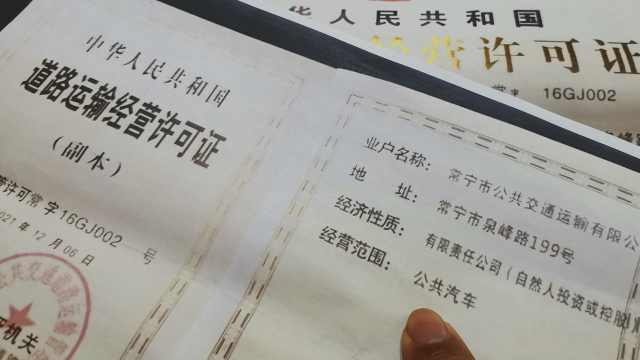 中华人民共和国
经营许可证
16GJ002
中华人民共和国
道路运输经营许可证
（副本）
许可常 字16GJ002 号
2021 年 12 月 06 日
公共交通道路运输
机关
业户名称：常宁市公共交通运输有限公
地 址：常宁市泉峰路199号
经济性质：有限责任公司（自然人投资或控股
经营范围：公共汽车